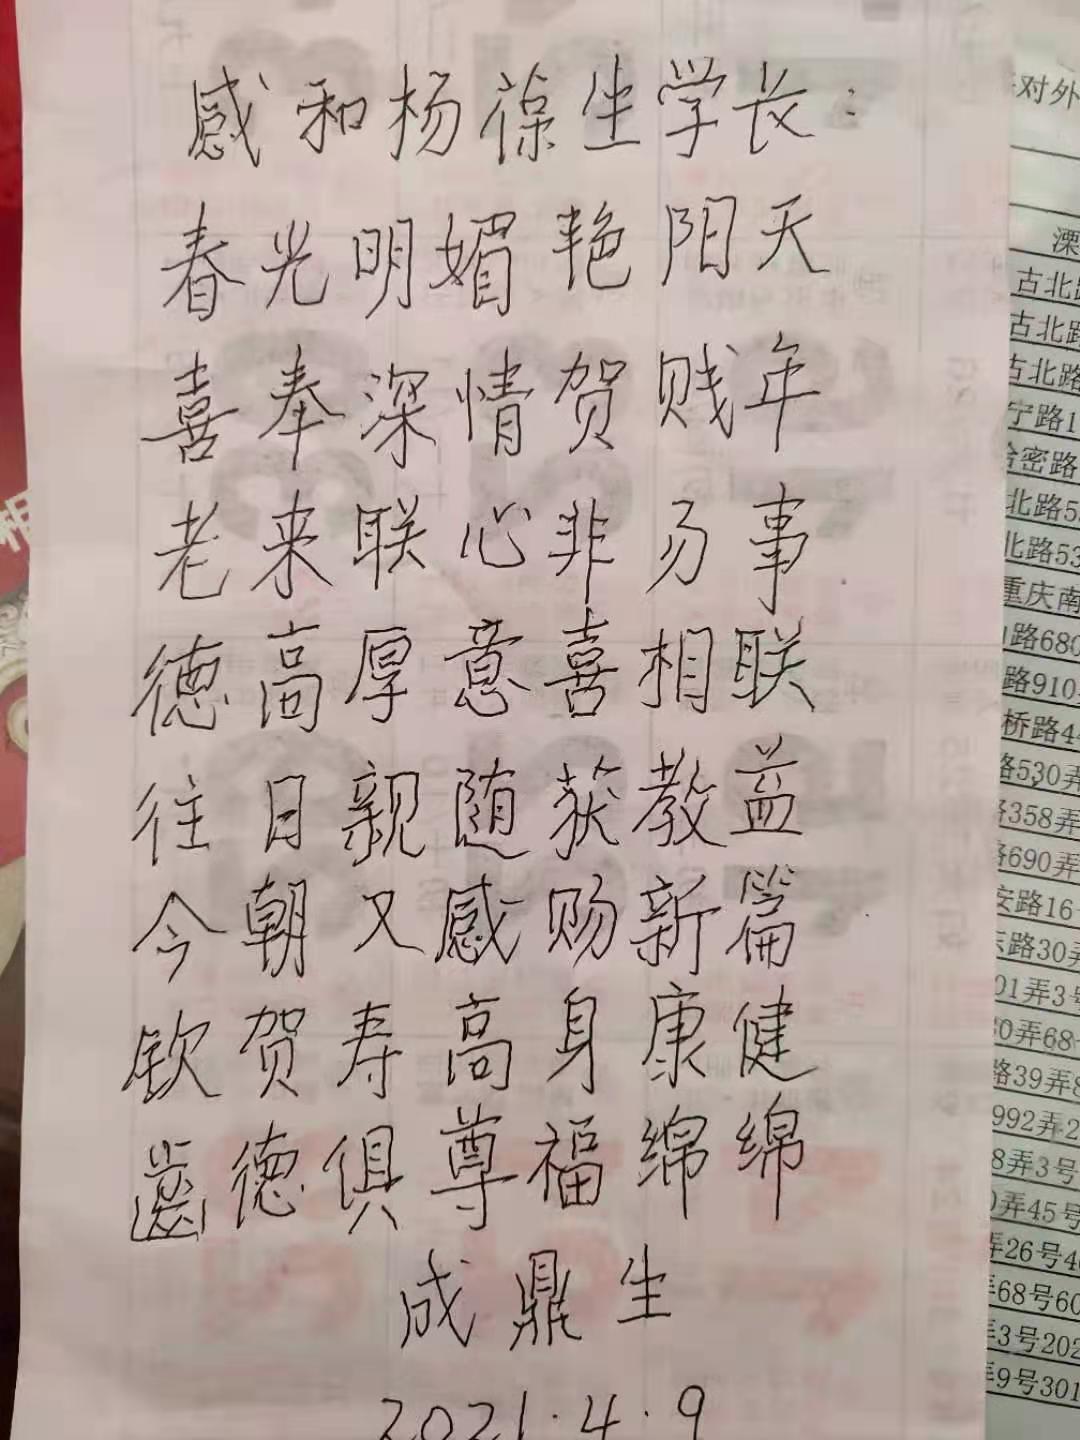 感和杨葆生学长:
春光明媚艳阳天
喜奉深情贺贱年
老来联心非易事
德高厚意喜相联
往日亲随获教益
今朝又感赐新篇
钦贺寿高身康健
齒德俱尊福绵绵
成鼎生
2021.4.9
对外
溧
古北路
古北路
古北路
宁路1
哈密路
北路5
北路53
重庆南
路680
路910
桥路44
路530弄
路358弄
路690弄
安路16
路30弄
01弄3号
0弄68
路39弄8
992弄2
8弄3号
0弄45号
弄26号4
弄68号60
弄3号202
弄9号301